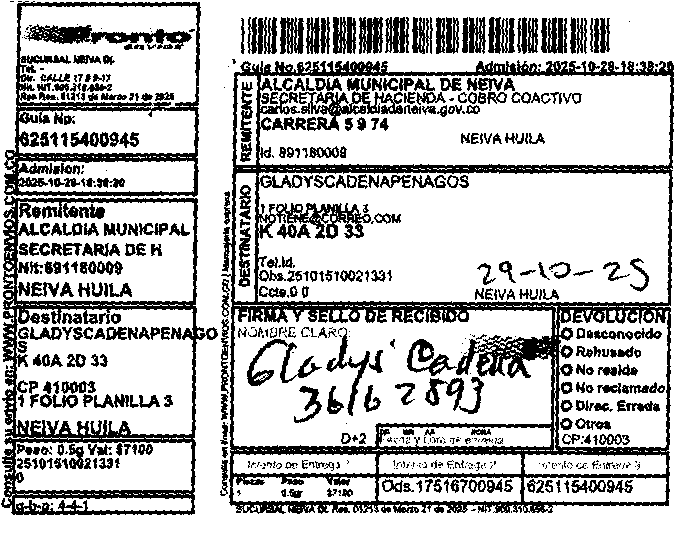 Pronto
envios
SUCURSAL NEIVA DL
Tel. -
Dir. CALLE 17 5 9-17
Res.Res. 01213 de Marzo 21 de 2025
Guía No:
625115400945
Admision:
2025-10-28-18:38:20
Remitente
ALCALDIA MUNICIPAL
SECRETARIA DE H
Nit:891180009
NEIVA HUILA
Destinatario
GLADYSCADENAPENAGO
S
K 40A 2D 33
CP 410003
1 FOLIO PLANILLA 3
NEIVA HUILA
Peso: 0.5g Val: $7100
25101510021331
0
g-b-p: 4-4-1
Consulte su envio en: WWW.PRONTOENVIOS.COM.CO
Guia No.625115400945
Admisión: 2025-10-28-18:38:20
REMITENTE
ALCALDIA MUNICIPAL DE NEIVA
SECRETARIA DE HACIENDA - COBRO COACTIVO
carlos.silva@alcaldianeiva.gov.co
CARRERA 5 9 74
NEIVA HUILA
Id. 891180009
DESTINATARIO
GLADYSCADENAPENAGOS
1 FOLIO PLANILLA 3
NOTIENE@CORREO.COM
K 40A 2D 33
Tel.Id.
Obs.25101510021331
Ccte.0 0
29-10-25
NEIVA HUILA
FIRMA Y SELLO DE RECIBIDO
NOMBRE CLARO:
Gladys Cadena
36162893
D+2
DD MM AA HORA
Fecha y Hora de entrega
DEVOLUCION
Desconocido
Rehusado
No reside
No reclamado
Direc. Errada
Otros
CP:410003
Intento de Entrega 1
Intento de Entrega 2
Intento de Entrega 3
Piezas Peso Valor
1 0.5g $7100
Ods.17516700945
625115400945
SUCURSAL NEIVA DL Res. 01213 de Marzo 21 de 2025 - NIT.900.310.856-2